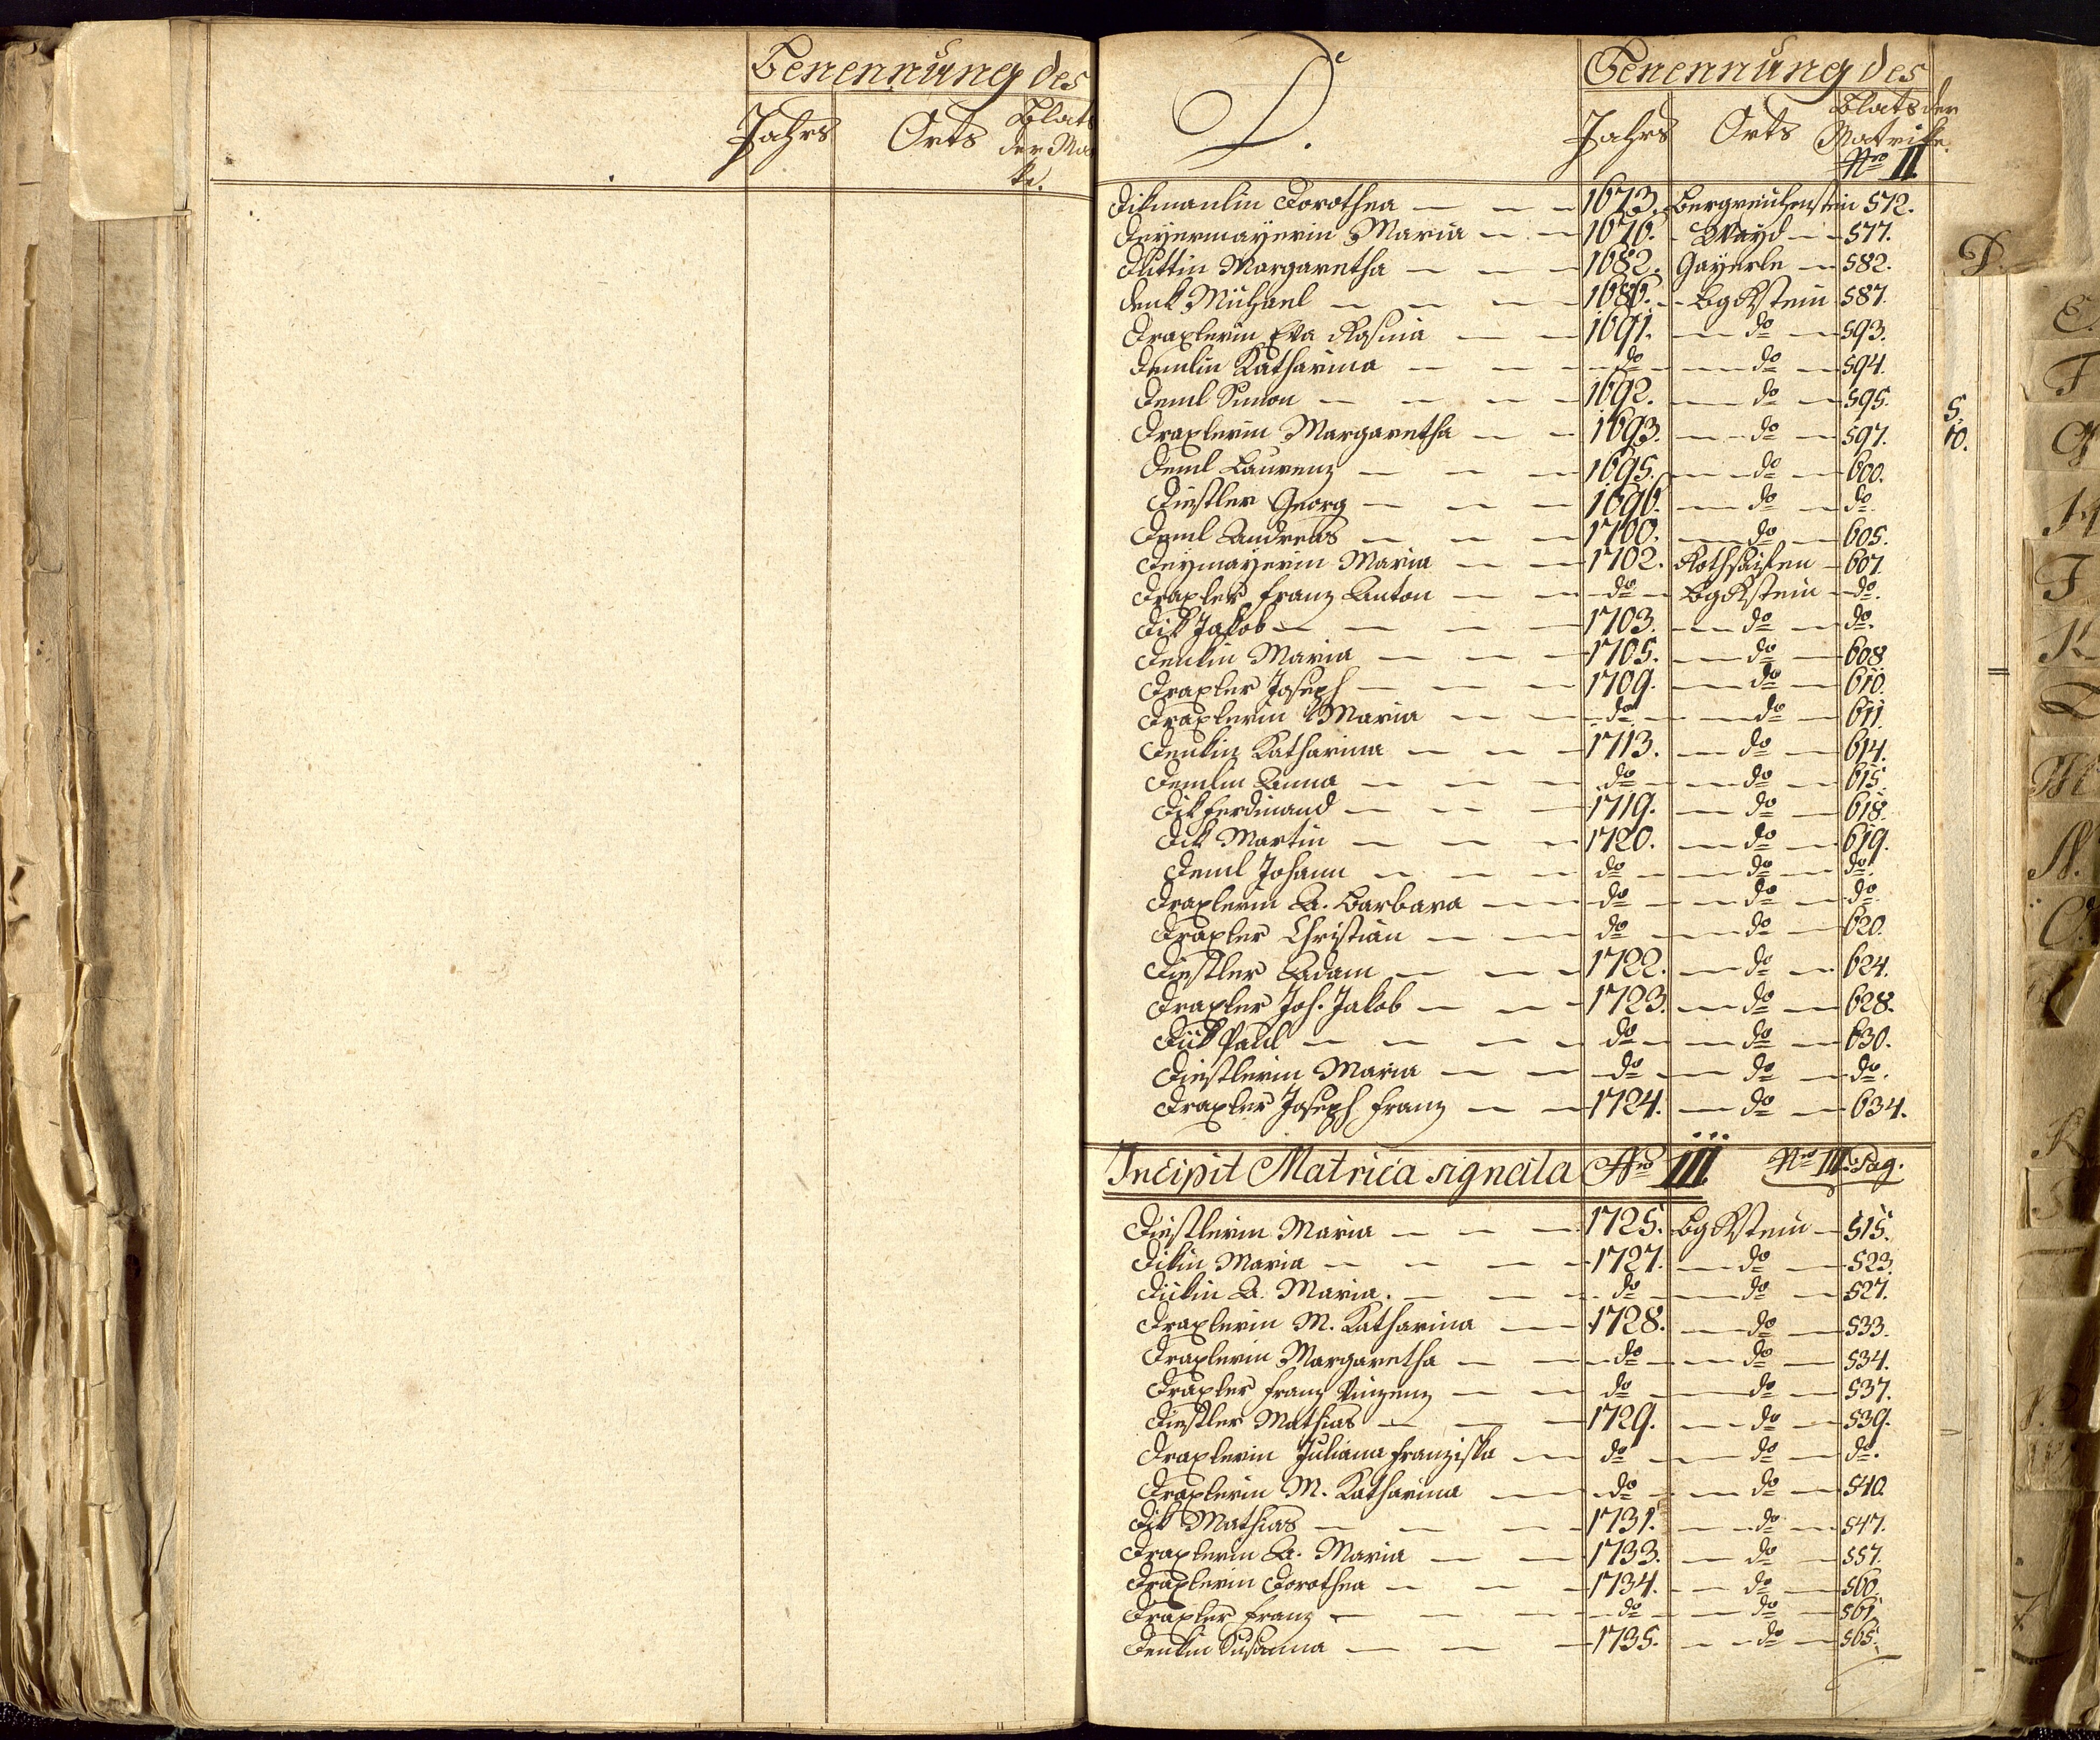 Benennung des
Jahrs Orts Blats der Mat
D. Benennung des
Jahrs Orts Blats der Matrike
Nro II.
Dikmanlin Dorothea — — — 1673. Bergreichenstein 572.
Deÿermaÿerin Maria — — 1676. Waÿd — 577.
Duttin Margaretha — — — 1682. Gaÿerle — 582.
Denk Michael — — — 1686. BgRstein 587.
Draxlerin Eva Rosina — — 1691. — do — 593.
Demlin Katharina — — — do — do — 594.
Deml Simon — — — 1692. — do — 595.
Draxlerin Margaretha — — 1693. — do — 597.
Deml Laurenz — — — 1695. — do — 600.
Distler Georg — — — 1696. — do — do.
Deml Andreas — — — 1700. — do — 605.
Deÿmaÿerin Maria — — 1702. Rothsaifen — 607.
Draxler Franz Anton — — do — BgRstein — do.
Dik Jakob — — — 1703. — do — do.
Denkin Maria — — — 1705. — do — 608
Draxler Joseph — — — 1709. — do — 610.
Draxlerin Maria — — — do — do — 611.
Denkin Katharina — — — 1713. — do — 614.
Demlin Anna — — — do — do — 615.
Dik Ferdinand — — — 1719. — do — 618.
Dik Martin — — — 1720. — do — 619.
Deml Johann — — — do — do — do.
Draxlerin A. Barbara — — do — do — do.
Draxler Christian — — do — do — 620.
Distler Adam — — — 1722. — do — 624.
Draxler Joh. Jakob — — — 1723. — do — 628.
Dik Paul — — — do — do — 630.
Distlerin Maria — — do — do — do.
Draxler Joseph Franz — — 1724. — do — 634.
Incipit Matrica signata Nro III. Nro III. Pag.
Distlerin Maria — — — 1725. BgRstein — 515.
Dikin Maria — — — 1727. — do — 523.
Dikin A. Maria. — — — do — do — 527.
Draxlerin M. Katharina — 1728. — do — 533.
Draxlerin Margaretha — — do — do — 534.
Draxler Franz Vinzenz — — do — do — 537.
Distler Mathias — — — 1729. — do — 539.
Draxlerin Juliana Franziska — do — do — do.
Draxlerin M. Katharina — do — do — 540.
Dik Mathias — — — 1731. — do — 547.
Draxlerin A. Maria — — 1733. — do — 557.
Draxlerin Dorothea — — — 1734. — do — 560.
Draxler Franz — — — do — do — 561.
Denkin Susanna — — — 1735. — do — 565.
5.
10.
D.
E.
F
G
H
I
K
L
M
N.
O.
R
S